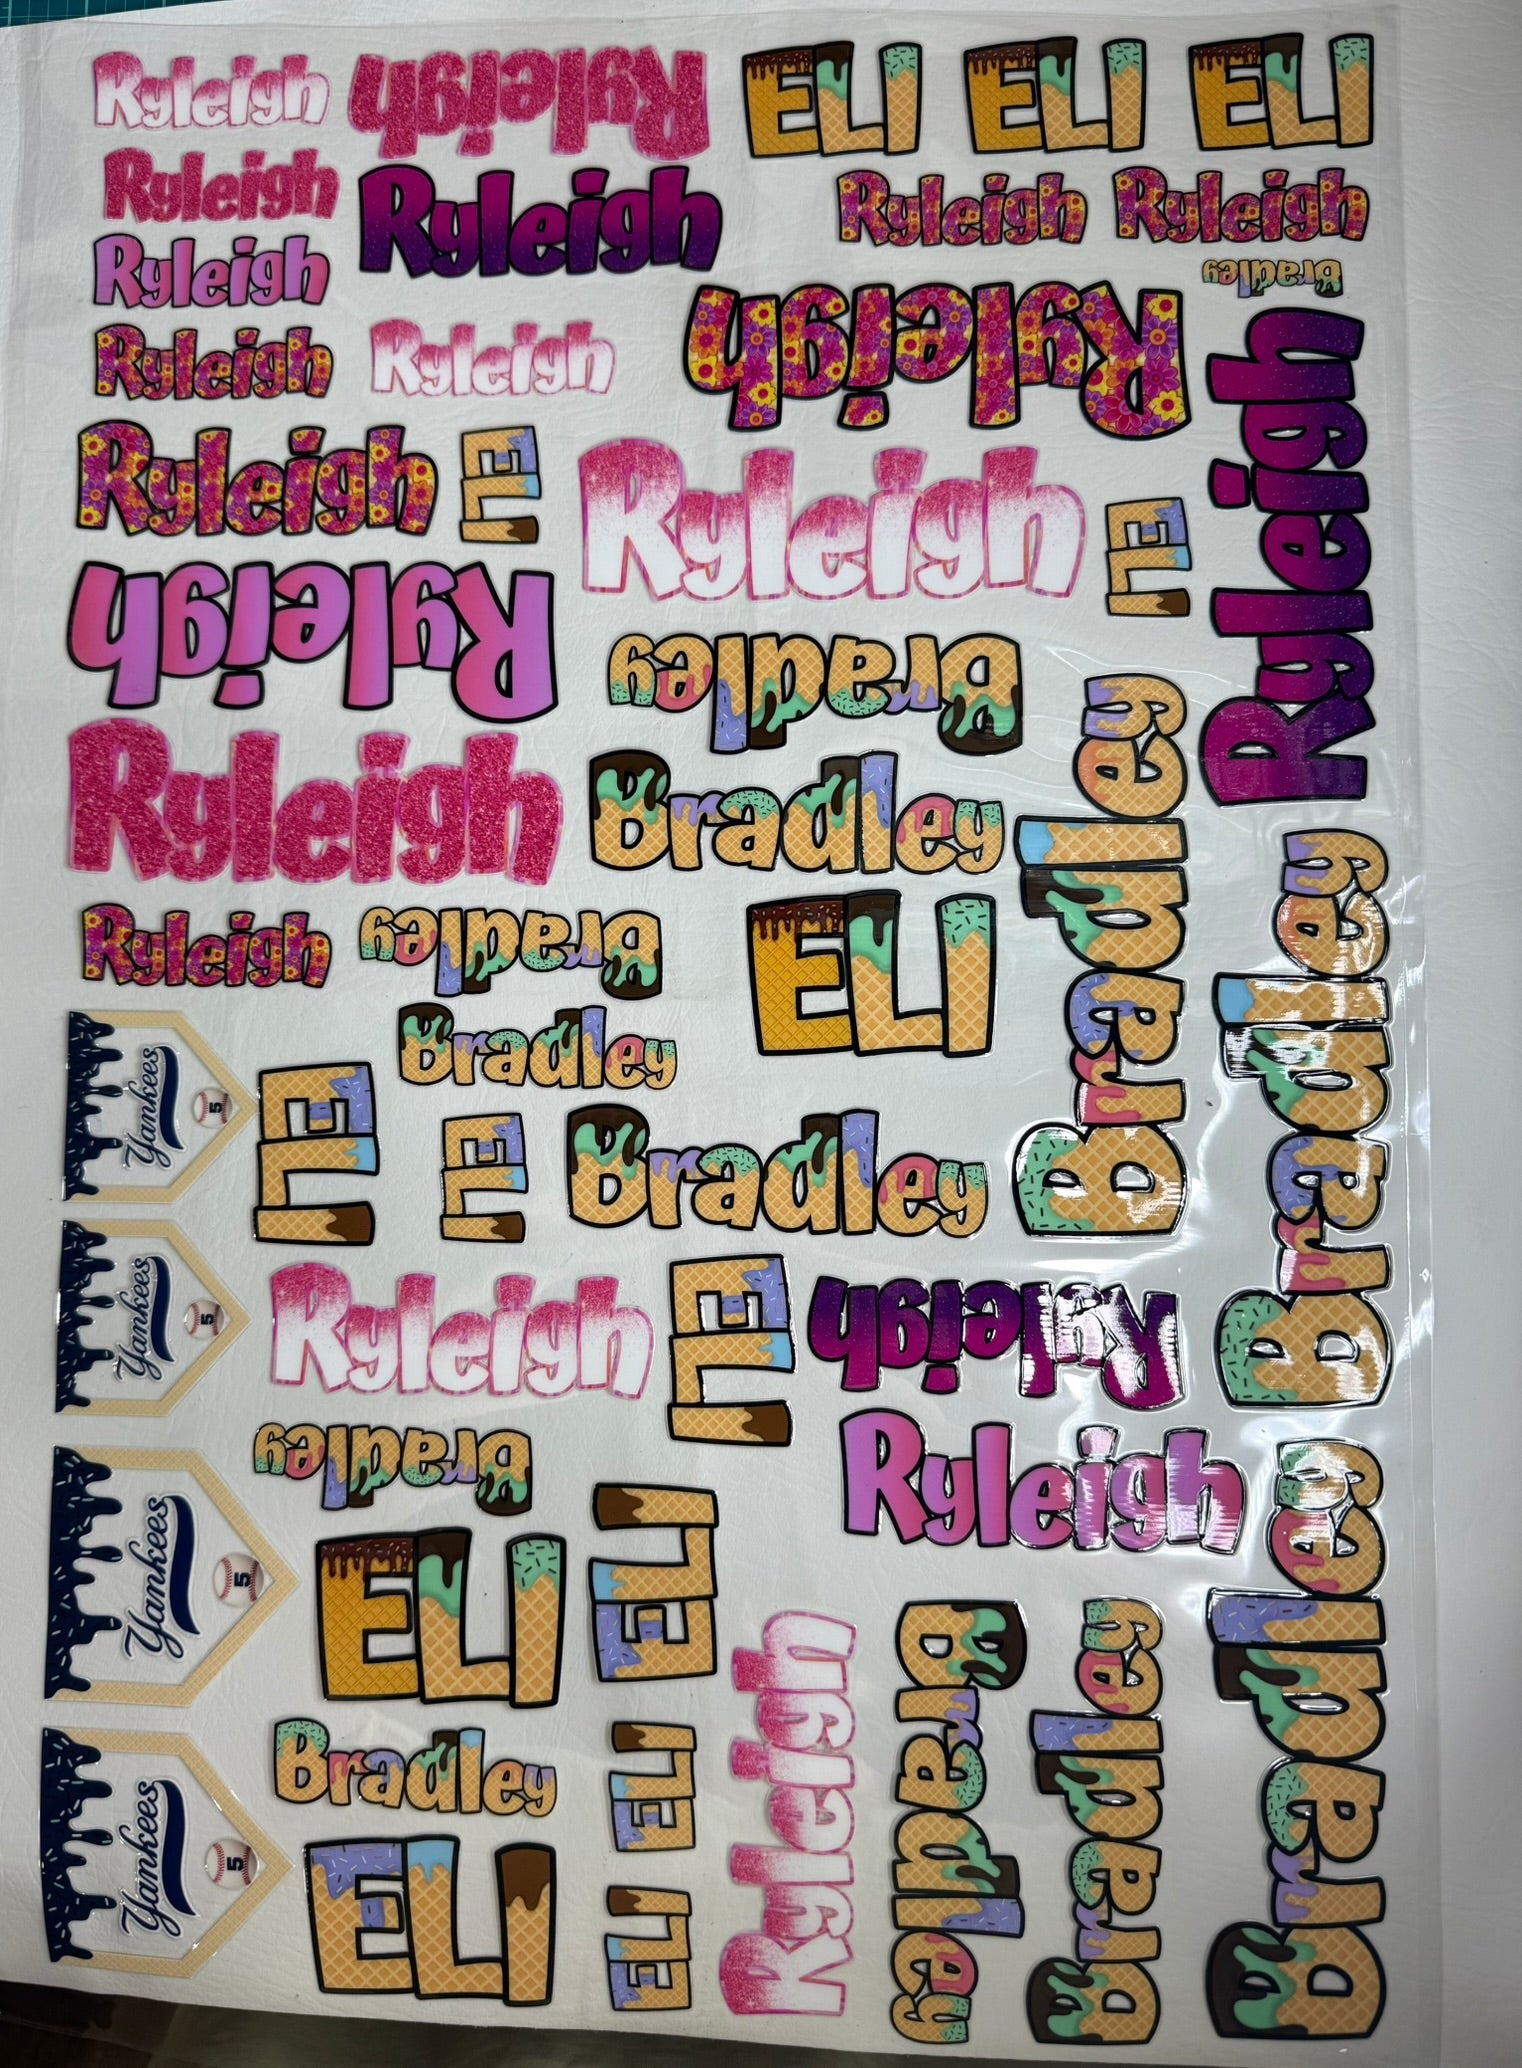 Ryleigh Ryleigh ELI ELI ELI
Ryleigh Ryleigh Ryleigh Ryleigh
Ryleigh Bradley
Ryleigh Ryleigh Ryleigh Ryleigh
Ryleigh ELI Ryleigh ELI
Ryleigh Bradley
Ryleigh Bradley Bradley
Ryleigh Bradley ELI Bradley
Bradley
Yankees 5 ELI ELI Bradley
Yankees 5 Ryleigh ELI Ryleigh
Bradley Ryleigh
Yankees 5 ELI ELI Bradley
Bradley ELI Ryleigh Bradley Bradley
Yankees 5 ELI ELI